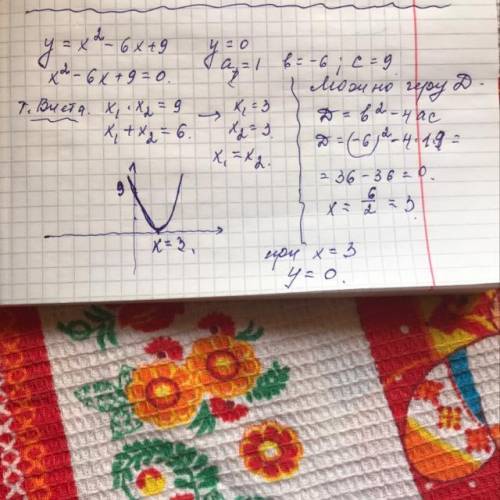 y = x² - 6x + 9   y = 0
x² - 6x + 9 = 0.   a = 1   b = -6 ; c = 9
т. Виета. x₁ · x₂ = 9 → x₁ = 3
x₁ + x₂ = 6.   x₂ = 3.
x₁ = x₂.
9
x = 3.
Можно через Д.
D = b² - 4ac
D = (-6)² - 4·1·9 =
= 36 - 36 = 0.
x = 6/2 = 3.
при x = 3
y = 0.